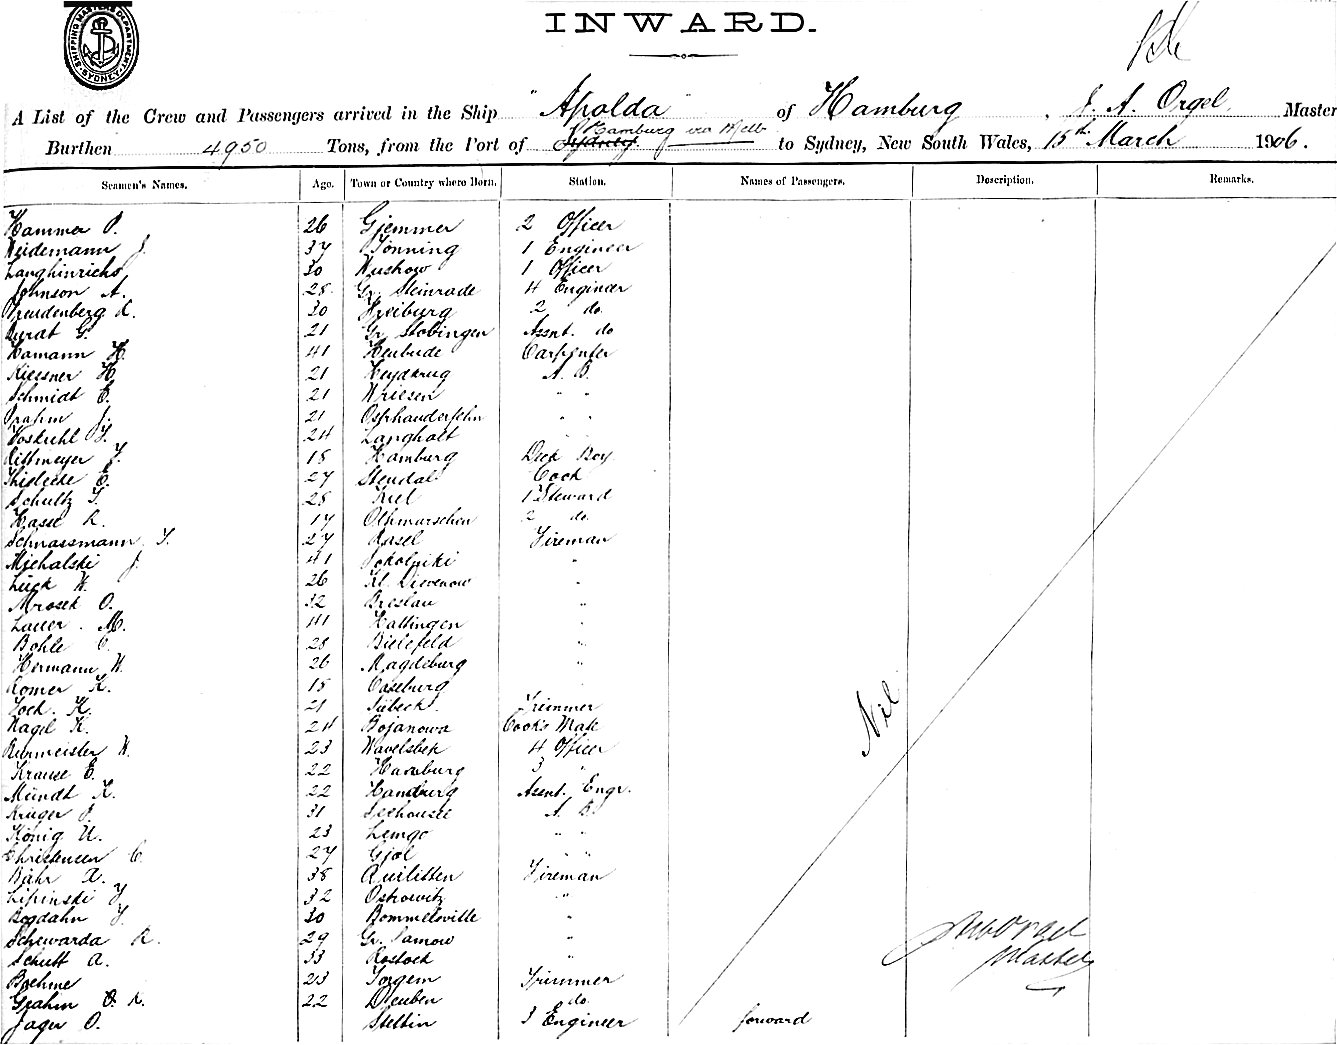 SHIPPING MASTER'S DEPARTMENT SYDNEY
INWARD.
A List of the Crew and Passengers arrived in the Ship "Apolda" of Hamburg, J. A. Orgel, Master
Burthen 4950 Tons, from the Port of Sydney Hamburg via Melb to Sydney, New South Wales, 15th March 1906.
Seamen's Names. Age. Town or Country where Born. Station. Names of Passengers. Description. Remarks.
Hammer P. 26 Gjemmer 2 Officer
Heidemann J. 37 Tonning 1 Engineer
Langhinrichs, 30 Wushow 1 Officer
Johnson A. 28 Gr. Steinrade 4 Engineer
Freudenberg 30 Freiburg 2 do.
G. 21 Gr. Stobingen Assnt. do
Hamann H. 41 Heubude Carpenter
Kiessner H. 21 Heydekrug A. B.
Schmidt E. 21 Wriesen " "
J. 21 " "
Voskuhl 24 Langholt
Rittmeyer F. 18 Hamburg Deck Boy
E. 27 Stendal Cook
Schultz F. 28 Kiel 1 Steward
Hasse R. 17 Othmarschen 2 do.
Schnassmann F. 27 Fireman
Michalski J. 41 Sokolniki "
Lück W. 26 Kl. Dievenow "
Mrosek O. 32 Breslau "
Lauer. M. 41 Hattingen "
Bohle C. 28 Bielefeld "
Hermann W. 26 Magdeburg "
Romer K. 15 Caseburg
K. 21 Lübeck. Trimmer
Nagel K. 24 Bojanowa Cook's Mate
Burmeister W. 23 Wavelsbek 4 Officer
Krause E. 22 Hamburg 3 "
Mündt K. 22 Hamburg Assnt. Engr.
Krüger P. 31 Seehausee A. B.
König U. 23 Lemgo " "
Christensen C. 27 Gjöl " "
Bähr 38 Quilitten Fireman
Lipinski 32 Ostrowitz "
Bogdahn 30 Bommelsville "
Schewarda R. 29 Gr. "
Schutt A. 33 Rostock "
Boehme 23 Torgem Trimmer
Grahm 22 Deuben do.
Jager O. Stettin 3 Engineer forward
Nil
Orgel
Master